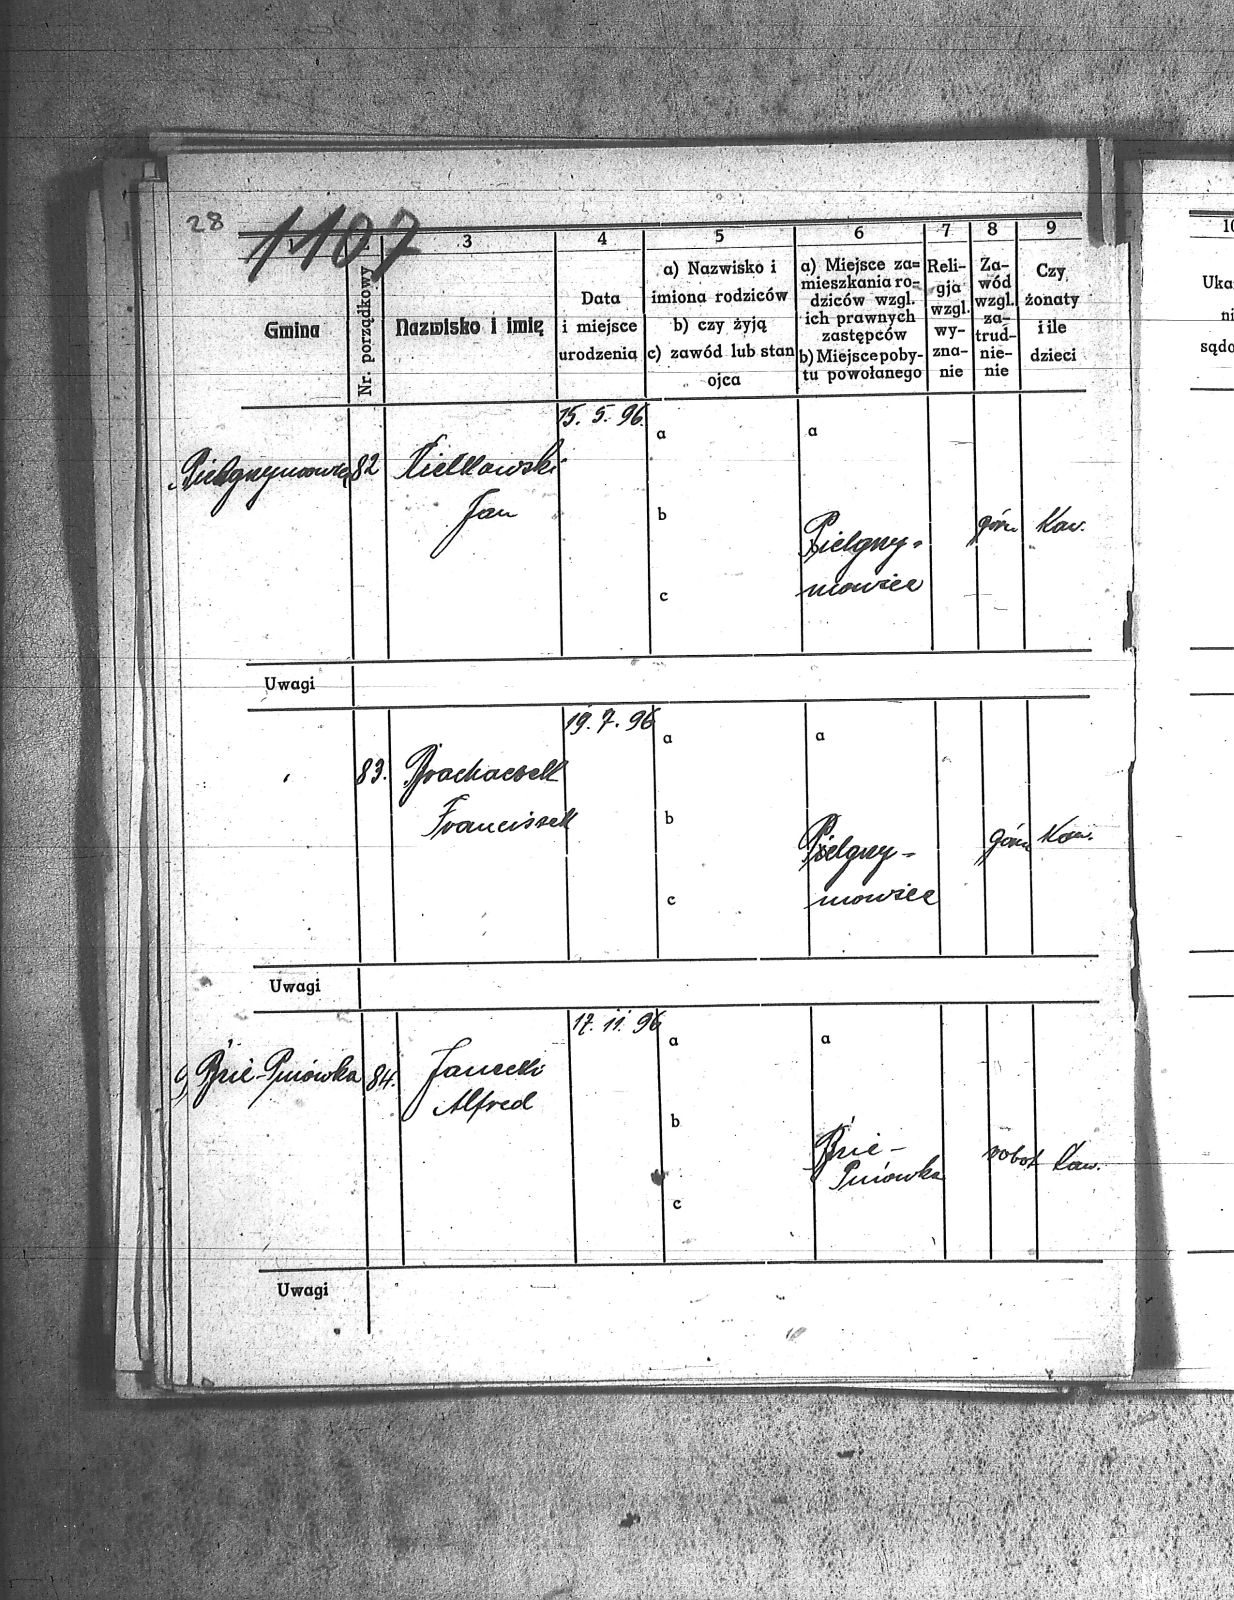 28
1107
1 2 3 4 5 6 7 8 9 10
Gmina
Nr. porządkowy
Nazwisko i imię
Data
i miejsce
urodzenia
a) Nazwisko i
imiona rodziców
b) czy żyją
c) zawód lub stan
ojca
a) Miejsce za=
mieszkania ro-
dziców wzgl.
ich prawnych
zastępców
b) Miejsce poby-
tu powołanego
Reli-
gja
wzgl.
wy-
zna-
nie
Za-
wód
wzgl.
za-
trud-
nie-
nie
Czy
żonaty
i ile
dzieci
Uka
ni
sądo
15. 5. 96.
Pielgrzymowice 82
Jan
a
b
c
a
Pielgrzy-
mowice
górn Kaw.
Uwagi
19. 7. 96
83. Brachaczek
Franciszek
a
b
c
a
Pielgrzy-
mowice
górn Kaw.
Uwagi
17. 11. 96
84. Janecki
Alfred
a
b
c
a
Pniówka
robot Kaw.
Uwagi